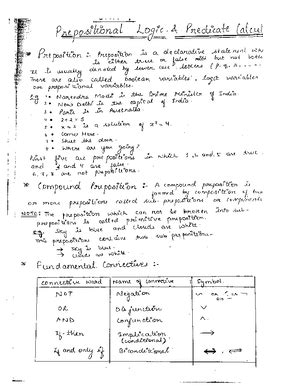 Prepositional Logic & Predicate Calcul
* Preposition :- Preposition is a declarative statement
is either true or false but not both
It is usually denoted by lower case letters (p, q, r, ...
There are also called boolean variables, logic variables
or prepositional variables.
Eg. 1. Narendra Modi is the Prime Minister of India
2. New Delhi is the capital of India.
3. Paris is in Australia.
4. 2+2=5
5. x=2 is a solution of x²=4.
6. Come Here.
7. Shut the door.
8. Where are you going?
first five are prepositions in which 1, 2 and 5 are true
and 3 and 4 are false.
6, 7, 8 are not prepositions.
* Compound Preposition :- A compound preposition is
formed by composition of two
or more prepositions called sub prepositions or components
NOTE: The preposition which can not be broken into sub-
prepositions is called primitive preposition.
eg. Sky is blue and clouds are white.
the preposition contains two sub prepositions
→ Sky is blue.
→ clouds are white.
* Fundamental Connectives :-
Connective word Name of connective Symbol
NOT Negation
OR Disjunction ∨
AND Conjunction ∧
If-then Implication (conditional) →
If and only if Biconditional ⇔ or ↔